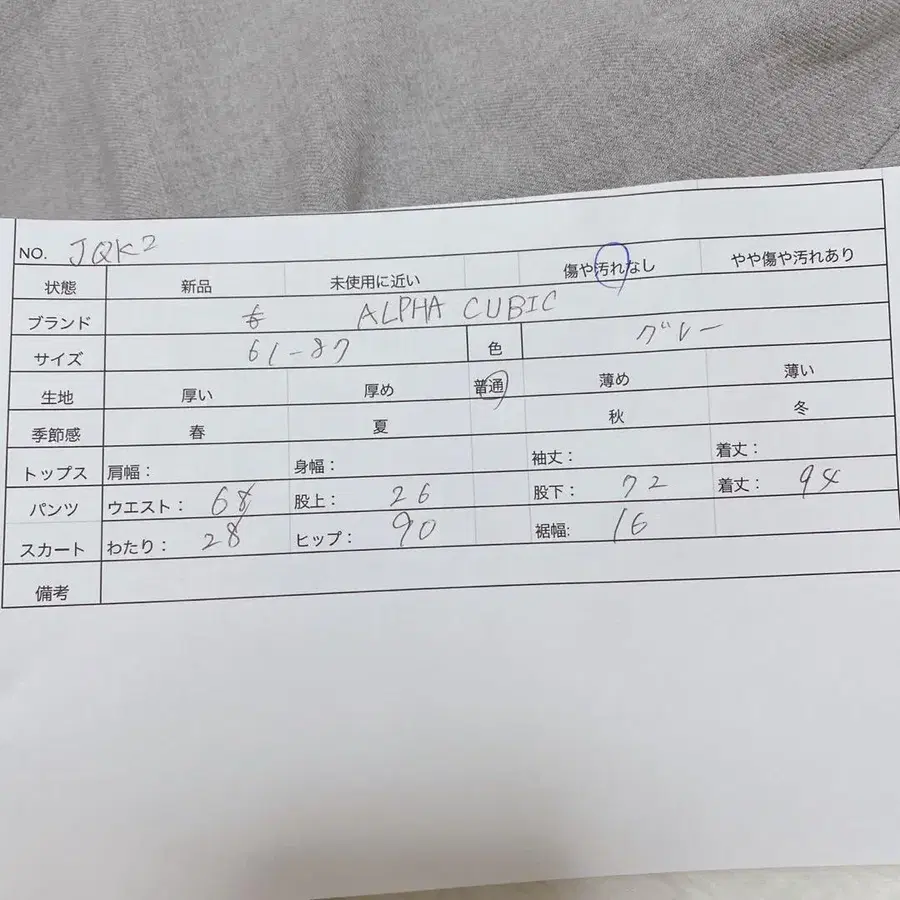 NO. JQK2
状態 新品 未使用に近い 傷や汚れなし やや傷や汚れあり
ブランド ALPHA CUBIC
サイズ 61-87 色 グレー
生地 厚い 厚め 普通 薄め 薄い
季節感 春 夏 秋 冬
トップス 肩幅： 身幅： 袖丈： 着丈：
パンツ ウエスト： 68 股上： 26 股下： 72 着丈： 94
スカート わたり： 28 ヒップ： 90 裾幅: 16
備考